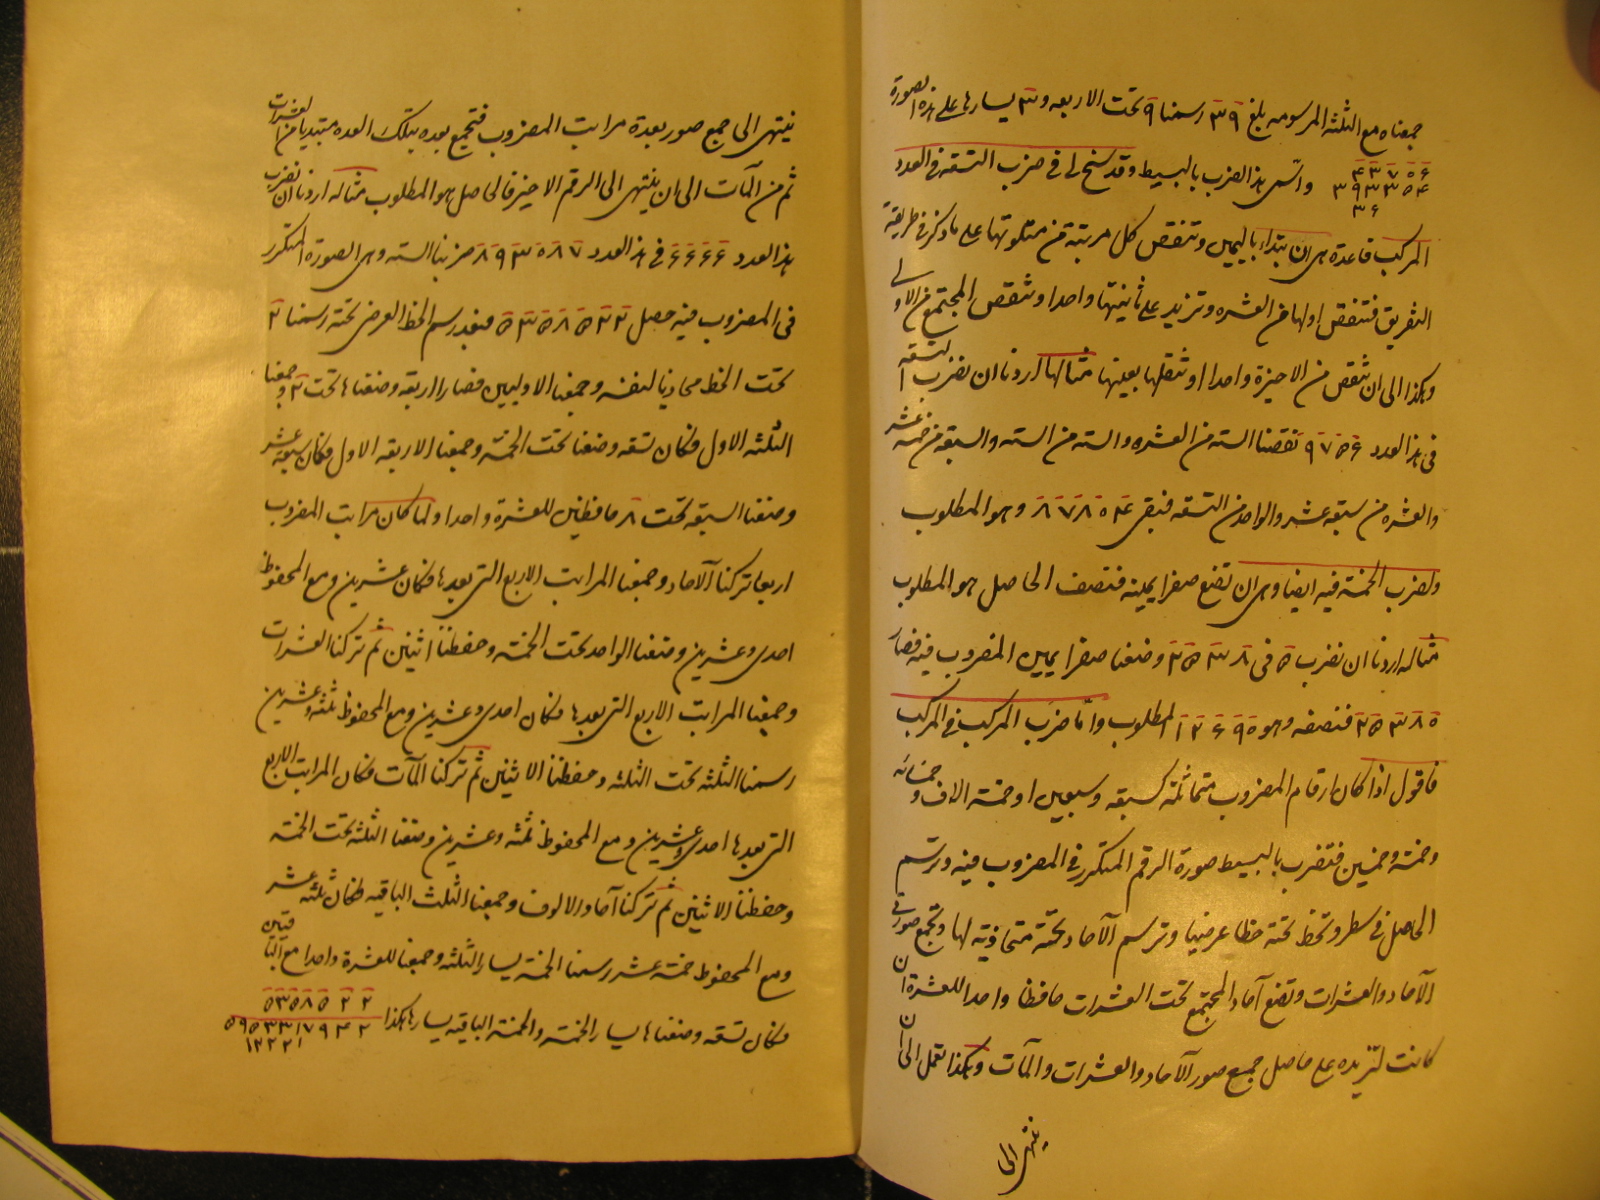 جمعناه مع الثلثه المرسومه بلغ ٣٩ رسمنا ٩ تحت الاربعه و ٣ يسارها على هذه الصورة
٤٣٧٥۶
٣٩٣٣٥۴
٣۶
وانس هذا الضرب بالبسيط وقد سنح لى فى ضرب التسعه فى العدد
المركب قاعدة هى ان تبتداء باليمين وتنقص كل مرتبة من متلوتها على ما ذكر فى طريقة
التفريق فتنقص اولها من العشره وتزيد على ثانيتها واحدا وتنقص المجتمع من الاولى
وهكذا الى ان تنقص من الاخيرة واحدا او تنقلها بعينها مثالها اردنا ان نضرب التسعه
فى هذا العدد ٩٧٥۶ نقصنا السته من العشره والسته من السته والسبعه من خمسه عشر
والعشره من سبعه عشر والواحد من التسعه فبقى ٨٧٨٠۴ وهو المطلوب
ولضرب الخمسة فيه ايضا وهى ان تضع صفرا يمينه فتنصف الحاصل هو المطلوب
مثاله اردنا ان نضرب ٥ فى ٢٥٣٨ وضعنا صفرا يمين المضروب فيه فصار
٢٥٣٨٠ فنصفه وهو ١٢۶٩٠ المطلوب واما ضرب المركب فى المركب
فاقول اذا كان ارقام المضروب متماثلة كسبعه وسبعين او خمسة الاف وخمسمائه
وخمسة وخمسين فتضرب بالبسيط صورة الرقم المتكرر فى المضروب فيه وترسم
الحاصل فى سطر وتخط تحته خطا عرضيا وترسم الآحاد تحته متحاذية لها وتجمع صورتى
الآحاد والعشرات وتضع آحاد المجتمع تحت العشرات حافظا واحدا للعشرة ان
كانت لتزيده على حاصل جمع صور الآحاد والعشرات والمآت وهكذا تعمل الى ان
ينتهى الى
ينتهى الى جمع صور بعدة مراتب المضروب فتجمع بعده بتلك العده مبتديا من العشرات
ثم من المآت الى ان ينتهى الى الرقم الاخير فالحاصل هو المطلوب مثاله اردنا ان نضرب
هذا العدد ۶۶۶۶ فى هذا العدد ٨٩٣٠٨٧ ضربنا السته وهى الصورة المتكرر
فى المضروب فيه حصل ٥٣٥٨٥٢٢ فبعد رسم الخط العرضى تحته رسمنا ٢
تحت الخط محاذيا لنفسه وجمعنا الاوليين فصارا اربعه وضعناها تحت ٢ وجمعنا
الثلثه الاول فكان تسعه وضعنا تحت الخمسه وجمعنا الاربعه الاول فكان سبعه عشر
وضعنا السبعه تحت ٨ حافظين للعشرة واحدا ولما كان مراتب المضروب
اربعا تركنا الآحاد وجمعنا المراتب الاربع التى بعدها فكان عشرين ومع المحفوظ
احدى وعشرين وضعنا الواحد تحت الخمسه وحفظنا اثنين ثم تركنا العشرات
وجمعنا المراتب الاربع التى بعدها فكان احدى وعشرين ومع المحفوظ ثلثه وعشرين
رسمنا الثلثه تحت الثلثه وحفظنا الاثنين ثم تركنا المآت فكان المراتب الاربع
التى بعدها احدى وعشرين ومع المحفوظ ثلثه وعشرين وضعنا الثلثه تحت الخمسه
وحفظنا الاثنين ثم تركنا آحاد الالوف وجمعنا الثلث الباقيه فكان ثلثه عشر
ومع المحفوظ خمسه عشر رسمنا الخمسه يسار الثلثه وجمعنا للعشرة واحدا مع الباقيتين
فكان تسعه وضعناها يسار الخمسه والخمسة الباقيه يسارها هكذا
٥٣٥٨٥٢٢
٥٩٥٣٣١٧٩۴٢
١٢٢٢١